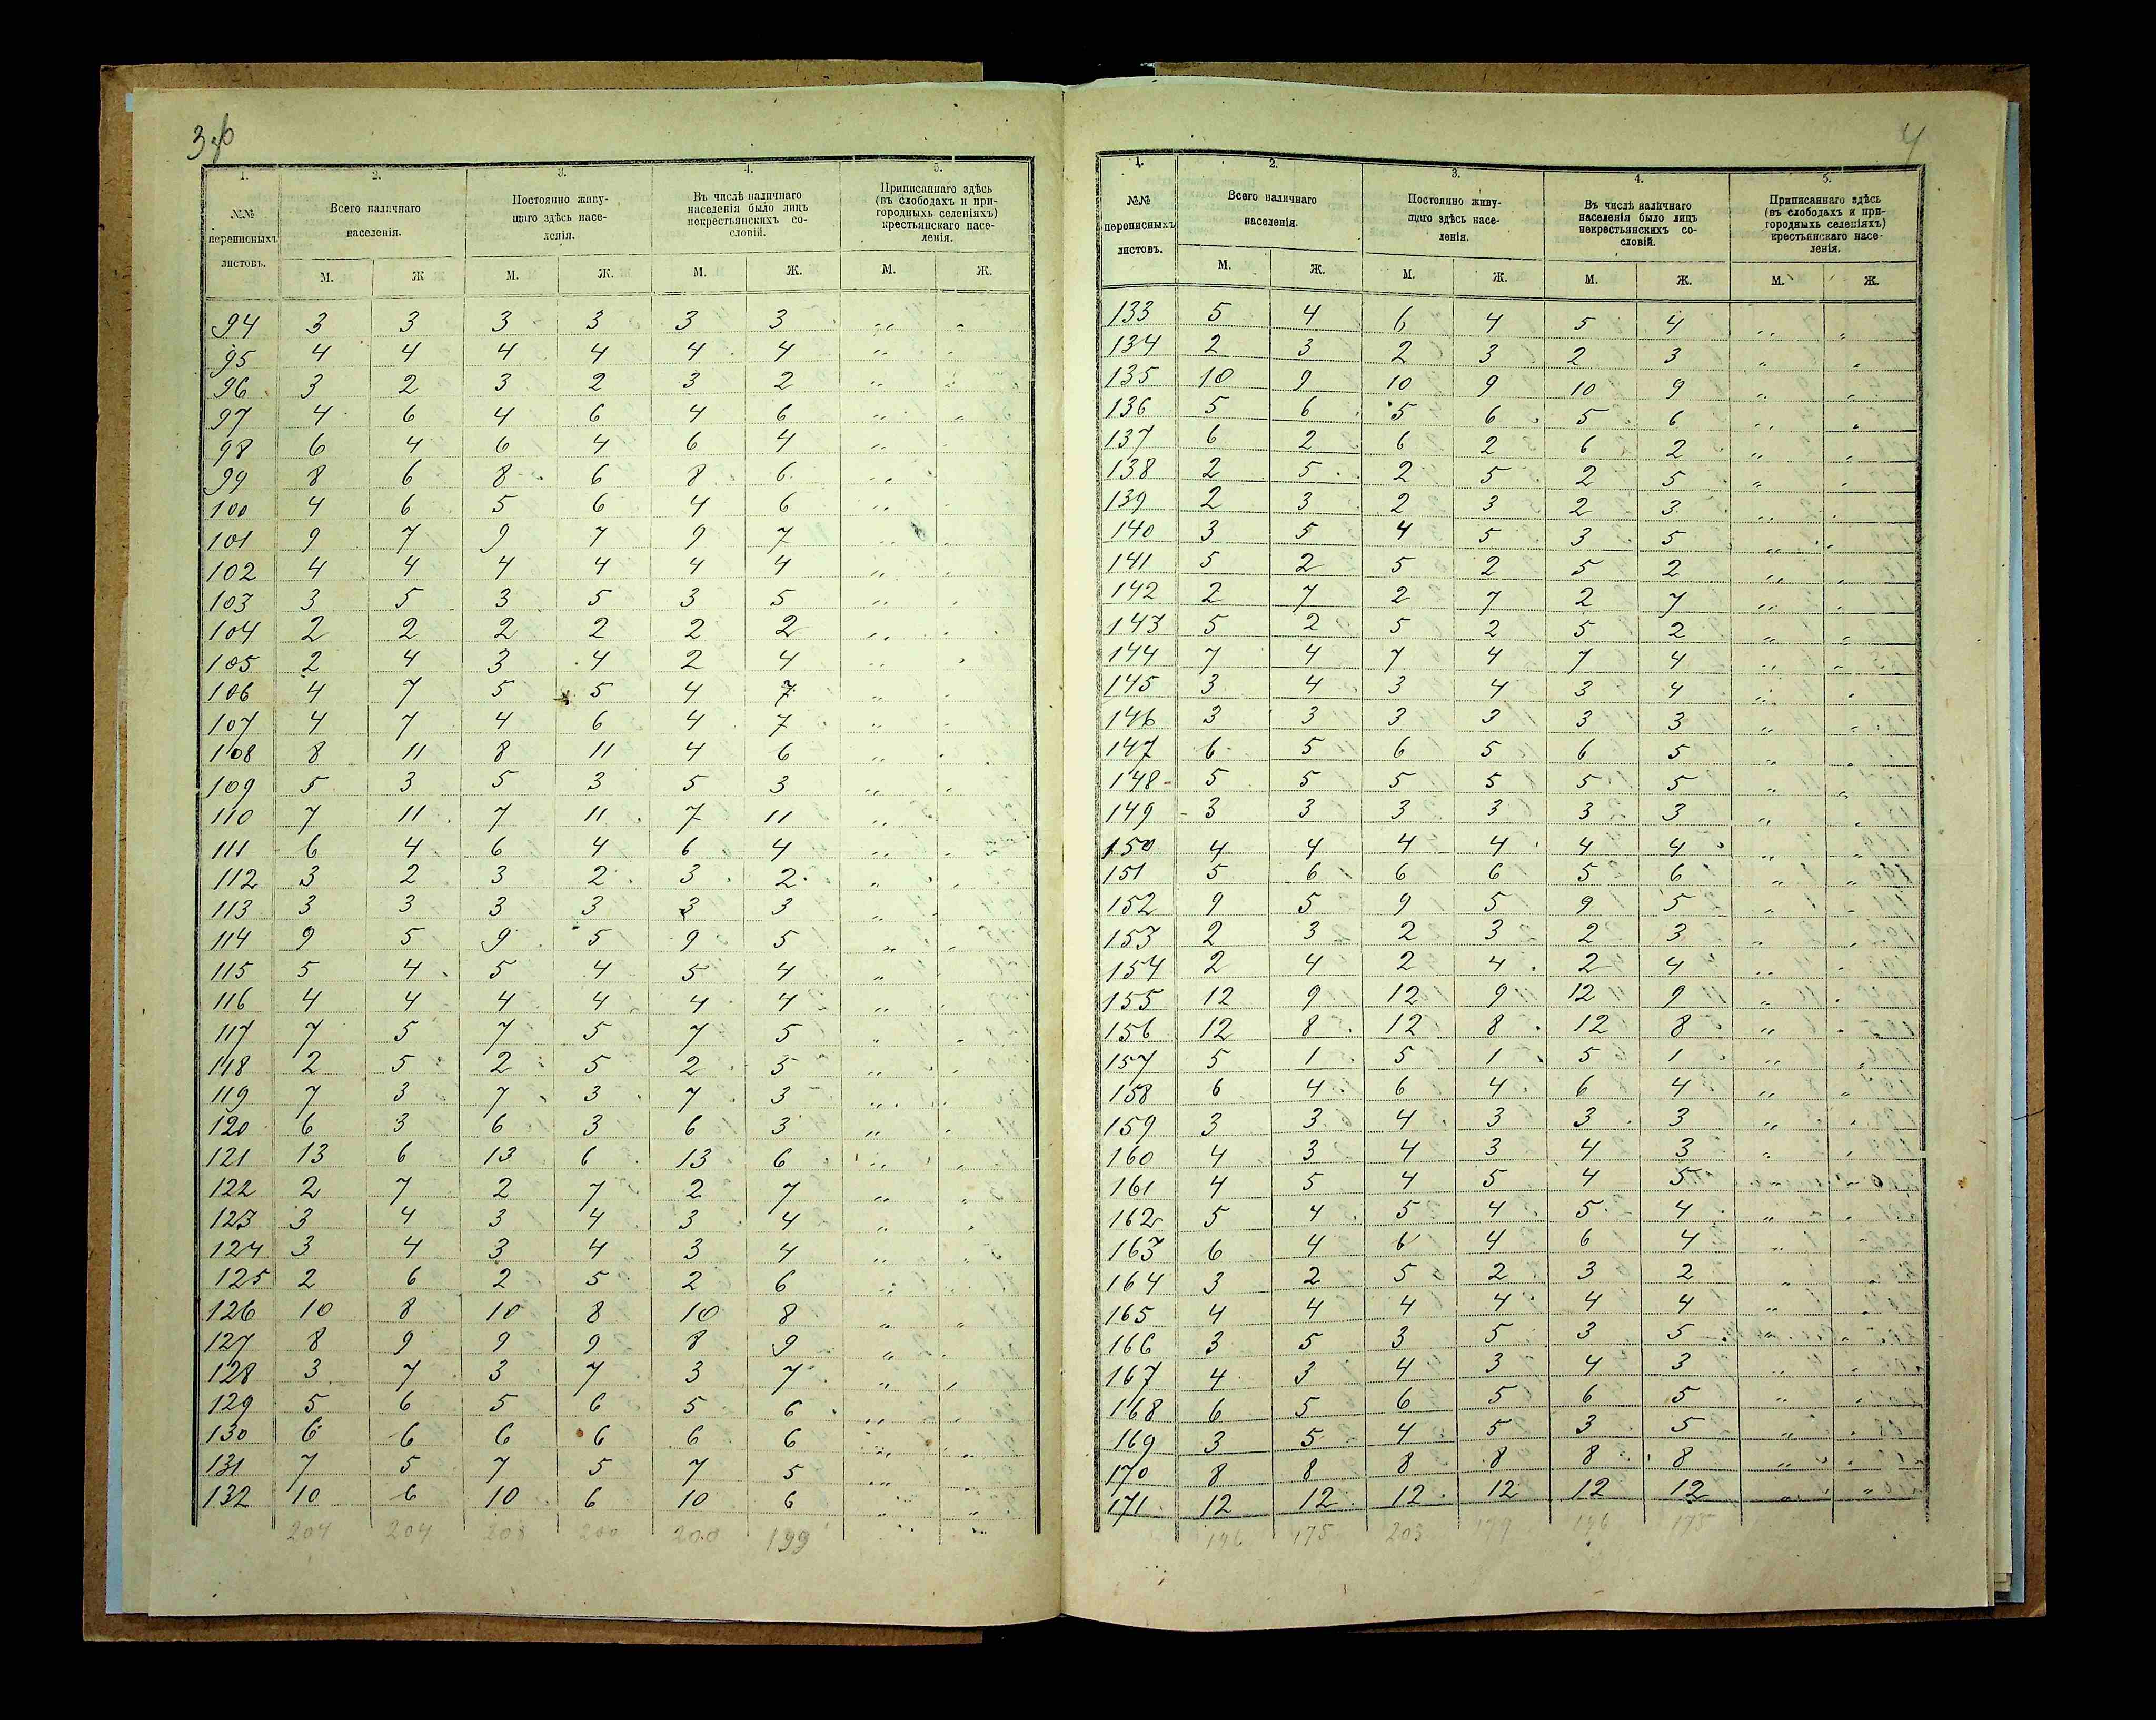 3об
1. 2. 3. 4. 5.
№№ переписныхъ листовъ. Всего наличнаго населенія. Постоянно живущаго здѣсь населенія. Въ числѣ наличнаго населенія было лицъ некрестьянскихъ сословій. Приписаннаго здѣсь (въ слободахъ и пригородныхъ селеніяхъ) крестьянскаго населенія.
М. Ж М. Ж. М. Ж. М. Ж.
94 3 3 3 3 3 3 „ „
95 4 4 4 4 4 4 „ „
96 3 2 3 2 3 2 „ „
97 4 6 4 6 4 6 „ „
98 6 4 6 4 6 4 „ „
99 8 6 8 6 8 6 „ „
100 4 6 5 6 4 6 „ „
101 9 7 9 7 9 7 „ „
102 4 4 4 4 4 4 „ „
103 3 5 3 5 3 5 „ „
104 2 2 2 2 2 2 „ „
105 2 4 3 4 2 4 „ „
106 4 7 5 5 4 7 „ „
107 4 7 4 6 4 7 „ „
108 8 11 8 11 4 6 „ „
109 5 3 5 3 5 3 „ „
110 7 11 7 11 7 11 „ „
111 6 4 6 4 6 4 „ „
112 3 2 3 2 3 2 „ „
113 3 3 3 3 3 3 „ „
114 9 5 9 5 9 5 „ „
115 5 4 5 4 5 4 „ „
116 4 4 4 4 4 4 „ „
117 7 5 7 5 7 5 „ „
118 2 5 2 5 2 5 „ „
119 7 3 7 3 7 3 „ „
120 6 3 6 3 6 3 „ „
121 13 6 13 6 13 6 „ „
122 2 7 2 7 2 7 „ „
123 3 4 3 4 3 4 „ „
124 3 4 3 4 3 4 „ „
125 2 6 2 5 2 6 „ „
126 10 8 10 8 10 8 „ „
127 8 9 9 9 8 9 „ „
128 3 7 3 7 3 7 „ „
129 5 6 5 6 5 6 „ „
130 6 6 6 6 6 6 „ „
131 7 5 7 5 7 5 „ „
132 10 6 10 6 10 6 „ „
204 204 208 200 200 199
4
1. 2. 3. 4. 5.
№№ переписныхъ листовъ. Всего наличнаго населенія. Постоянно живущаго здѣсь населенія. Въ числѣ наличнаго населенія было лицъ некрестьянскихъ сословій. Приписаннаго здѣсь (въ слободахъ и пригородныхъ селеніяхъ) крестьянскаго населенія.
М. Ж. М. Ж. М. Ж. М. Ж.
133 5 4 6 4 5 4 „ „
134 2 3 2 3 2 3 „ „
135 10 9 10 9 10 9 „ „
136 5 6 5 6 5 6 „ „
137 6 2 6 2 6 2 „ „
138 2 5 2 5 2 5 „ „
139 2 3 2 3 2 3 „ „
140 3 5 4 5 3 5 „ „
141 5 2 5 2 5 2 „ „
142 2 7 2 7 2 7 „ „
143 5 2 5 2 5 2 „ „
144 7 4 7 4 7 4 „ „
145 3 4 3 4 3 4 „ „
146 3 3 3 3 3 3 „ „
147 6 5 6 5 6 5 „ „
148 5 5 5 5 5 5 „ „
149 3 3 3 3 3 3 „ „
150 4 4 4 4 4 4 „ „
151 5 6 6 6 5 6 „ „
152 9 5 9 5 9 5 „ „
153 2 3 2 3 2 3 „ „
154 2 4 2 4 2 4 „ „
155 12 9 12 9 12 9 „ „
156 12 8 12 8 12 8 „ „
157 5 1 5 1 5 1 „ „
158 6 4 6 4 6 4 „ „
159 3 3 4 3 3 3 „ „
160 4 3 4 3 4 3 „ „
161 4 5 4 5 4 5 „ „
162 5 4 5 4 5 4 „ „
163 6 4 6 4 6 4 „ „
164 3 2 5 2 3 2 „ „
165 4 4 4 4 4 4 „ „
166 3 5 3 5 3 5 „ „
167 4 3 4 3 4 3 „ „
168 6 5 6 5 6 5 „ „
169 3 5 4 5 3 5 „ „
170 8 8 8 8 8 8 „ „
171 12 12 12 12 12 12 „ „
196 175 203 179 196 175